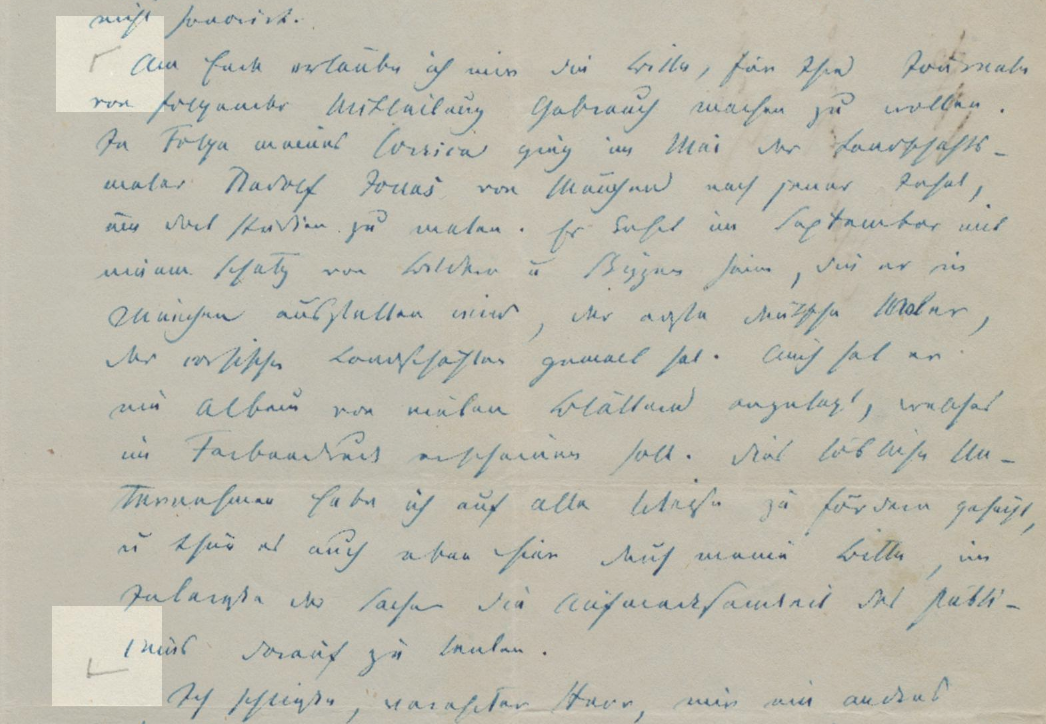 nicht
Am Ende erlaube ich mir die Bitte, für Ihr Journal
von folgender Mittheilung Gebrauch machen zu wollen.
In Folge meines Corsica ging im Mai der Landschafts-
maler Rudolf Jonas von München nach jener Insel,
um dort Studien zu malen. Er kehrt im September mit
einem Schatz von Bildern u Skizzen heim, die er in
München ausstellen wird, der erste deutsche Maler,
der corsische Landschaften gemalt hat. Auch hat er
ein Album von vielen Blättern angelegt, welches
im Farbendruck erscheinen soll. Dies löbliche Un-
ternehmen habe ich auf alle Weise zu fördern gesucht,
u thue es auch eben hier durch meine Bitte, im
Interesse der Sache die Aufmerksamkeit des Publi-
kums darauf zu lenken.
Ich schließe, verehrter Herr, mir ein anderes